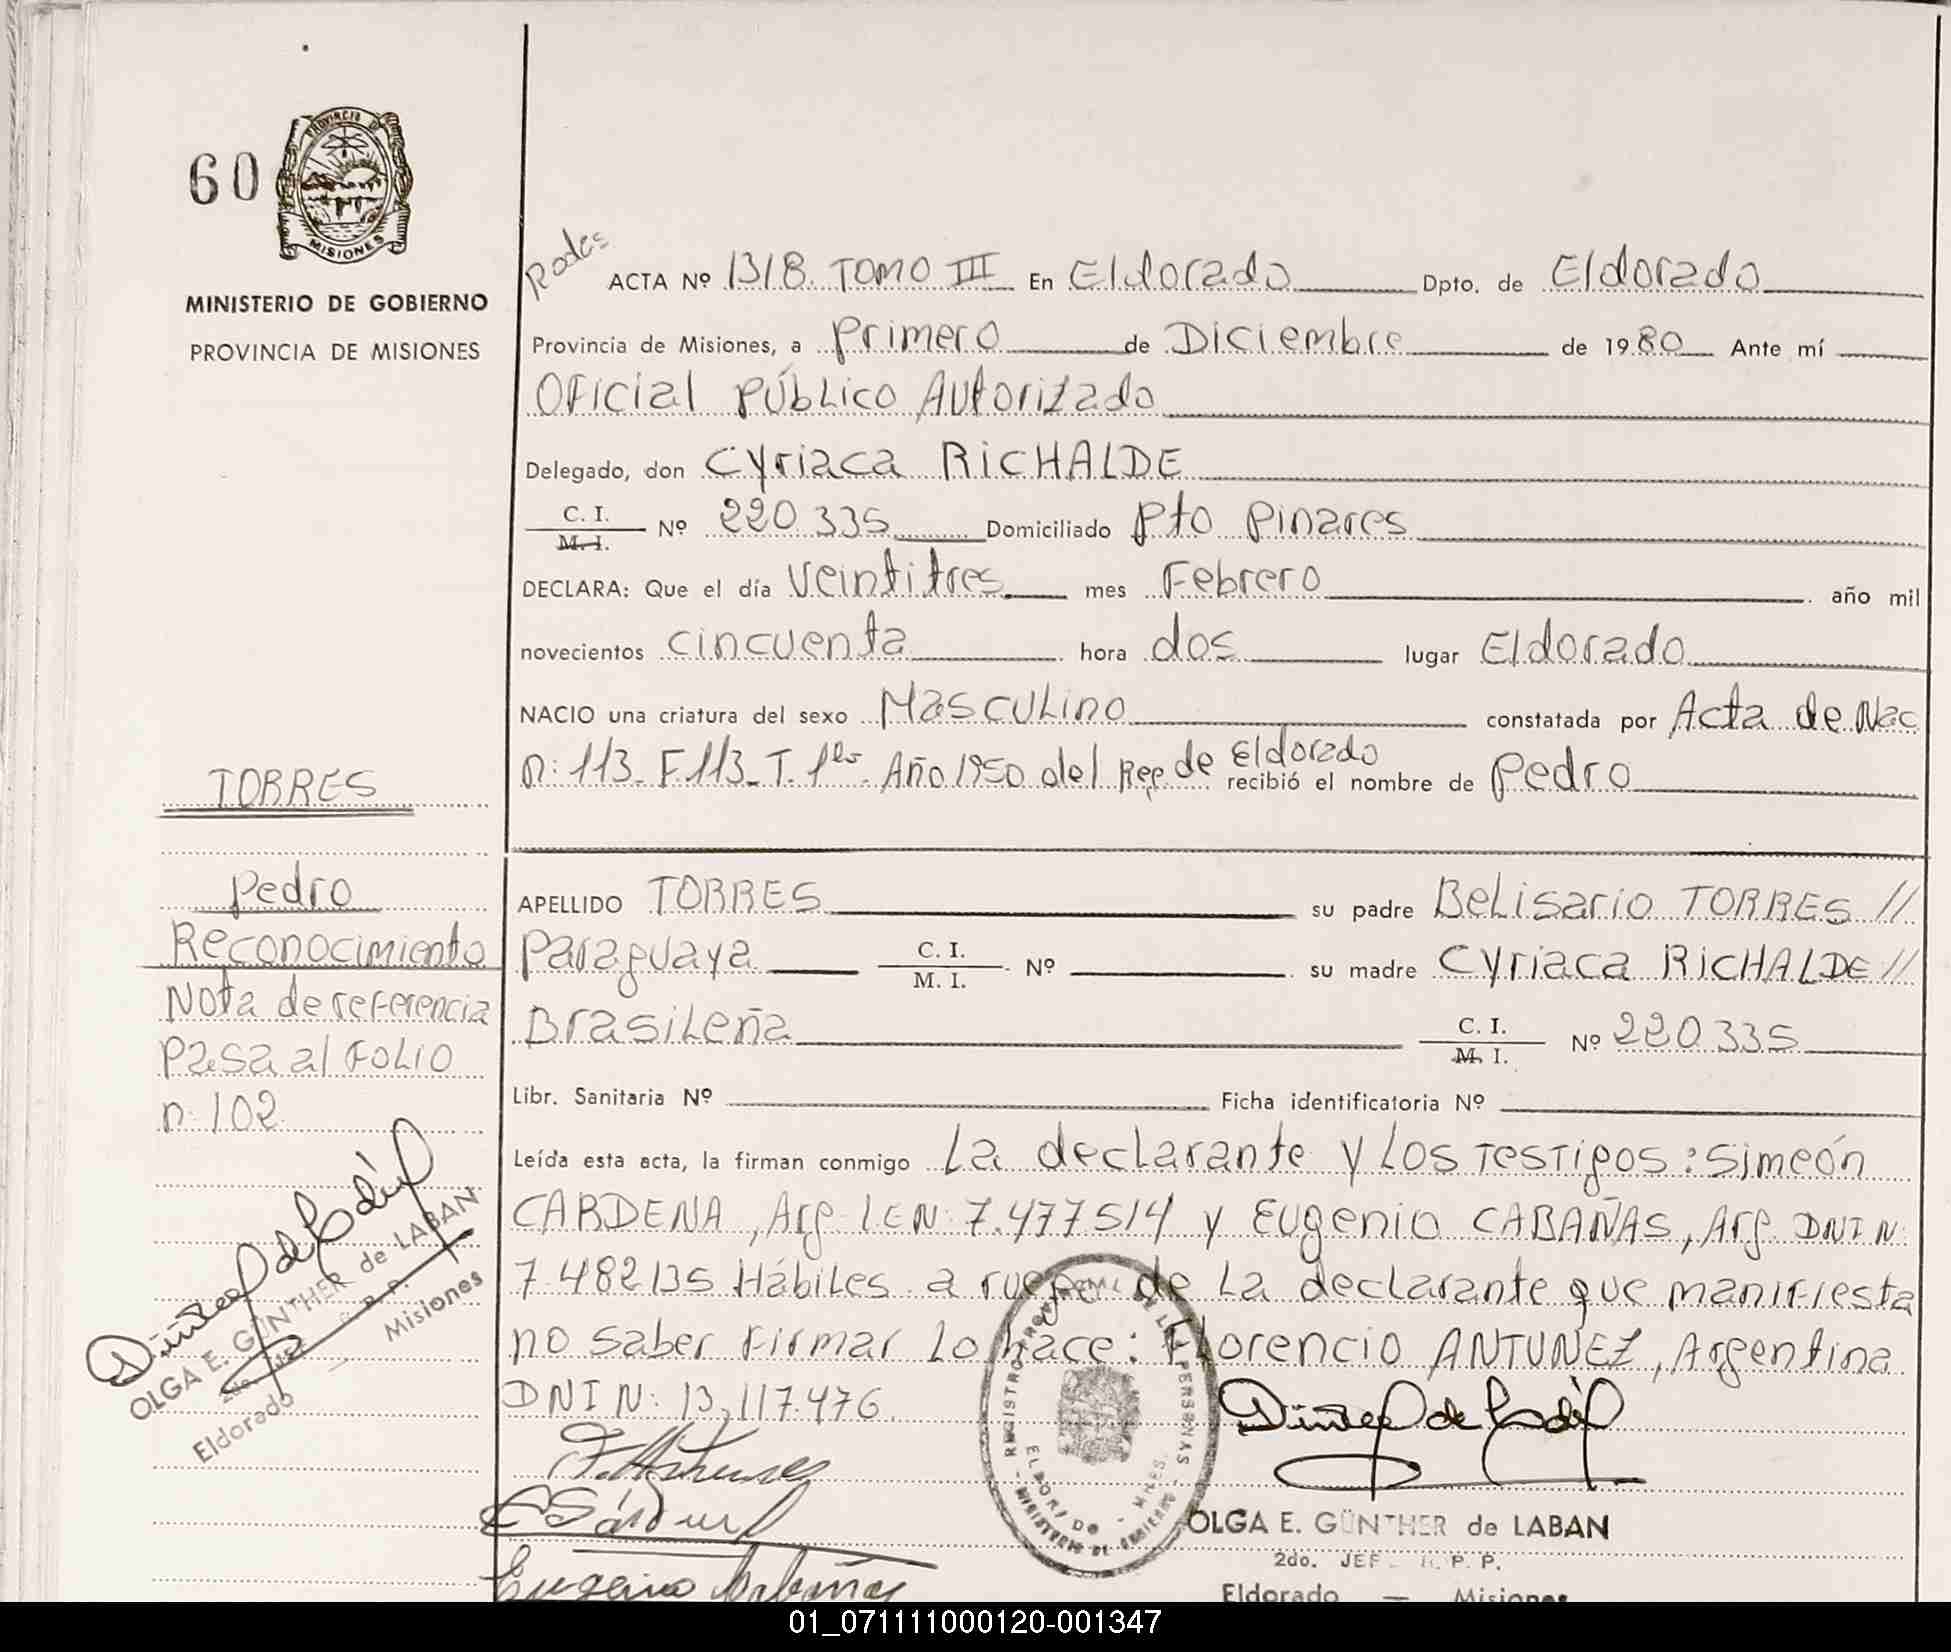 60
PROVINCIA DE
MISIONES
MINISTERIO DE GOBIERNO
PROVINCIA DE MISIONES
TORRES
Pedro
Reconocimiento
Nota de referencia
Pasa al Folio
n: 102
OLGA E. GÜNTHER de LABAN
Eldorado Misiones
ACTA Nº 1318 TOMO III En Eldorado Dpto. de Eldorado
Provincia de Misiones, a Primero de Diciembre de 1980 Ante mí
Oficial Público Autorizado
Delegado, don Cyriaca RICHALDE
C. I.
M. I. Nº 220.335 Domiciliado Pto Pinares
DECLARA: Que el día Veintitres mes Febrero año mil
novecientos cincuenta hora dos lugar Eldorado
NACIO una criatura del sexo Masculino constatada por Acta de Nac
n: 113. F.113. T. 1º. Año 1950 del Rep. de Eldorado recibió el nombre de Pedro
APELLIDO TORRES su padre Belisario TORRES //
Paraguaya C. I. M. I. Nº su madre Cyriaca RICHALDE //
Brasileña C. I. M. I. Nº 220.335
Libr. Sanitaria Nº Ficha identificatoria Nº
Leída esta acta, la firman conmigo La declarante y los Testigos: Simeón
CARDENA, Arg. L.E N: 7.477514 y Eugenio CABAÑAS, Arg. DNI N:
7.482135 Hábiles a ruego de la declarante que manifiesta
no saber firmar lo hace: Florencio ANTUNEZ, Argentina
DNI N: 13,117.476.
REGISTRO PROVINCIAL DE LAS PERSONAS
ELDORADO - MNES.
MINISTERIO DE GOBIERNO
Eugenio Cabañas
OLGA E. GÜNTHER de LABAN
2do. JEFE R. P. P.
Eldorado — Misiones
01_071111000120-001347